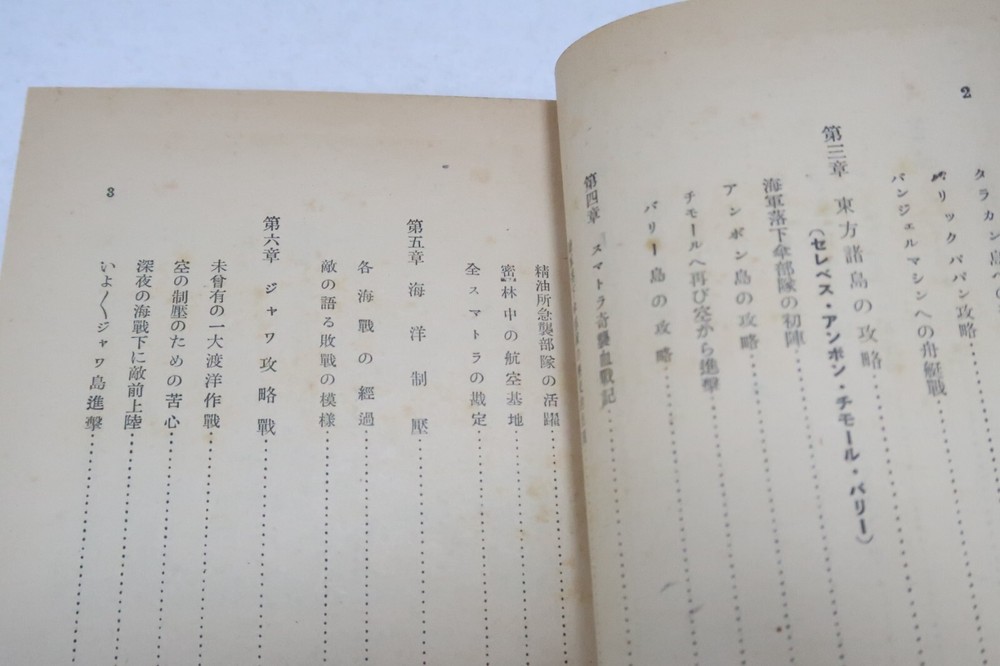 2
タラカン島への
バリックパパン攻略
バンジェルマシンへの舟艇戦
第三章　東方諸島の攻略
(セレベス・アンボン・チモール・バリー)
海軍落下傘部隊の初陣
アンボン島の攻略
チモールへ再び空から進撃
バリー島の攻略
第四章　スマトラ奇襲血戰記
精油所急襲部隊の活躍
密林中の航空基地
全スマトラの戡定
第五章　海洋制壓
各海戰の經過
敵の語る敗戰の模樣
第六章　ジャワ攻略戰
未曾有の一大渡洋作戰
空の制壓のための苦心
深夜の海戰下に敵前上陸
いよ〳〵ジャワ島進擊
3